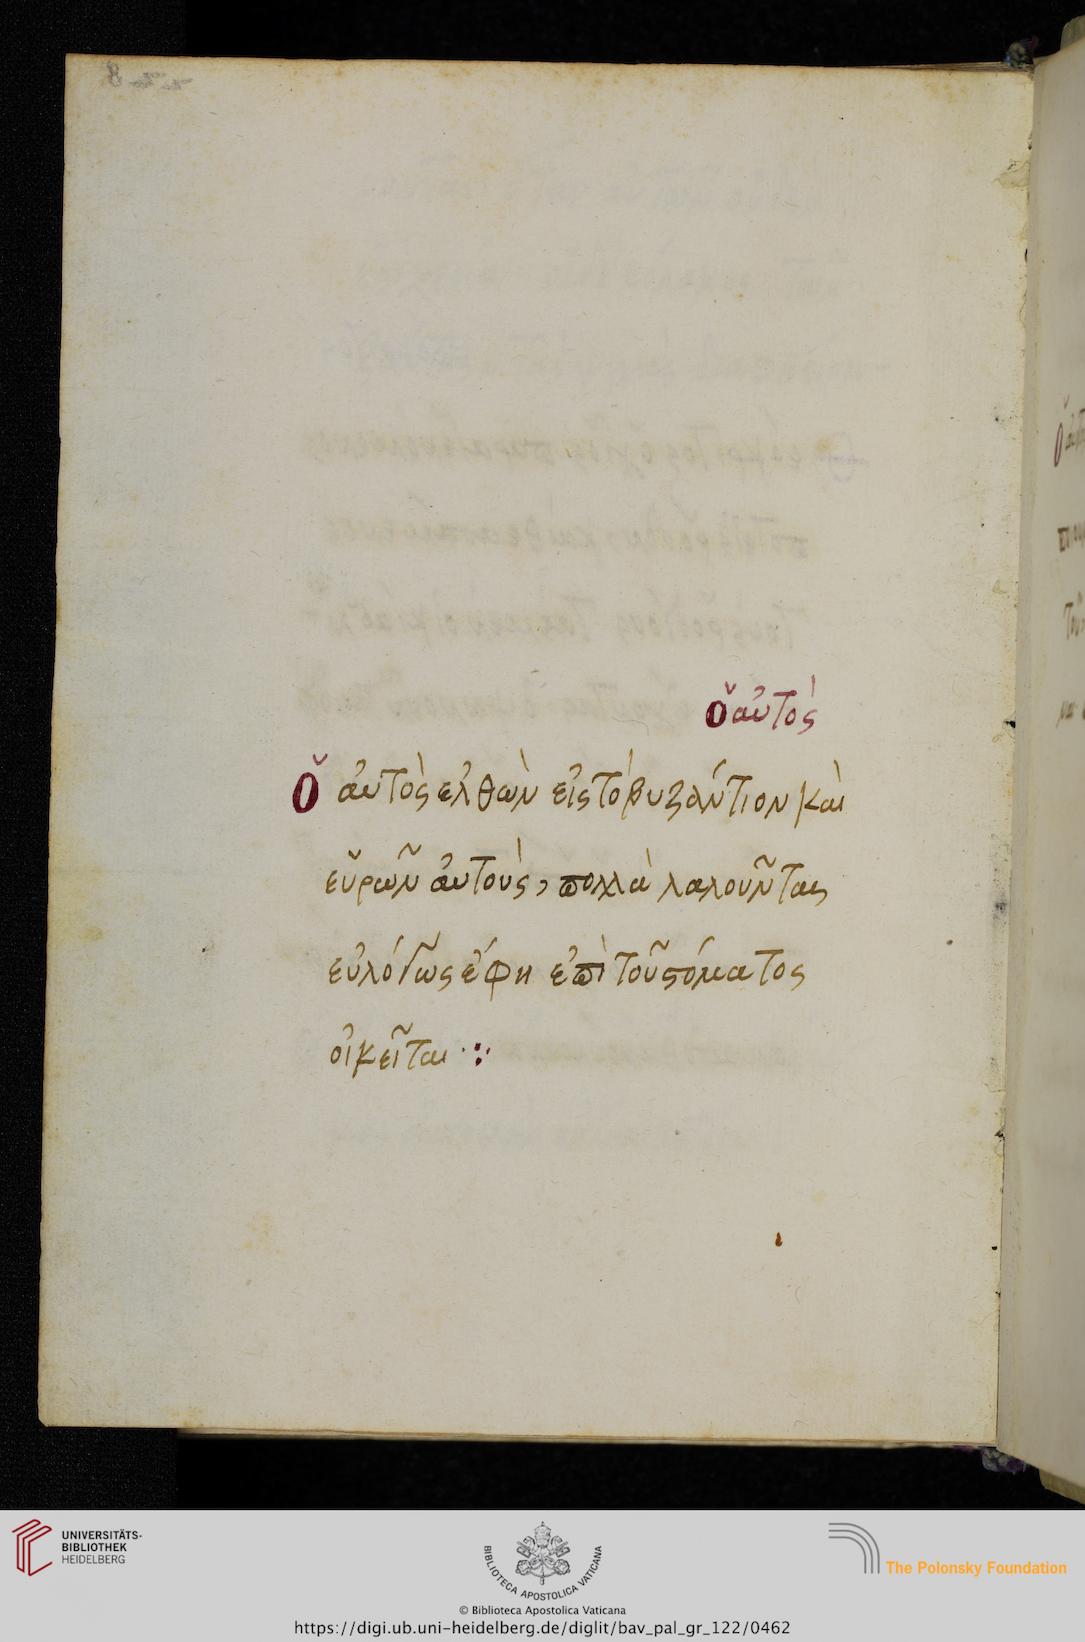 ὁ αὐτὸς
Ὁ αὐτὸς ἐλθὼν εἰς τὸ βυζάντιον καὶ
εὑρῶν αὐτοὺς, πολλὰ λαλοῦντας
εὐλόγως ἔφη ἐπὶ τοῦ στόματος
οἰκεῖται
UNIVERSITÄTS-
BIBLIOTHEK
HEIDELBERG
BIBLIOTECA APOSTOLICA VATICANA
The Polonsky Foundation
© Biblioteca Apostolica Vaticana
https://digi.ub.uni-heidelberg.de/diglit/bav_pal_gr_122/0462